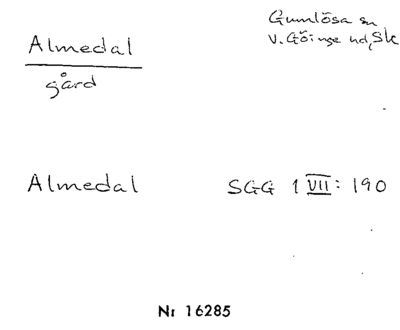 Almedal
gård
Gumlösa sn
V. Göinge hd, Sk
Almedal
SGG 1 VII: 190
Nr 16285